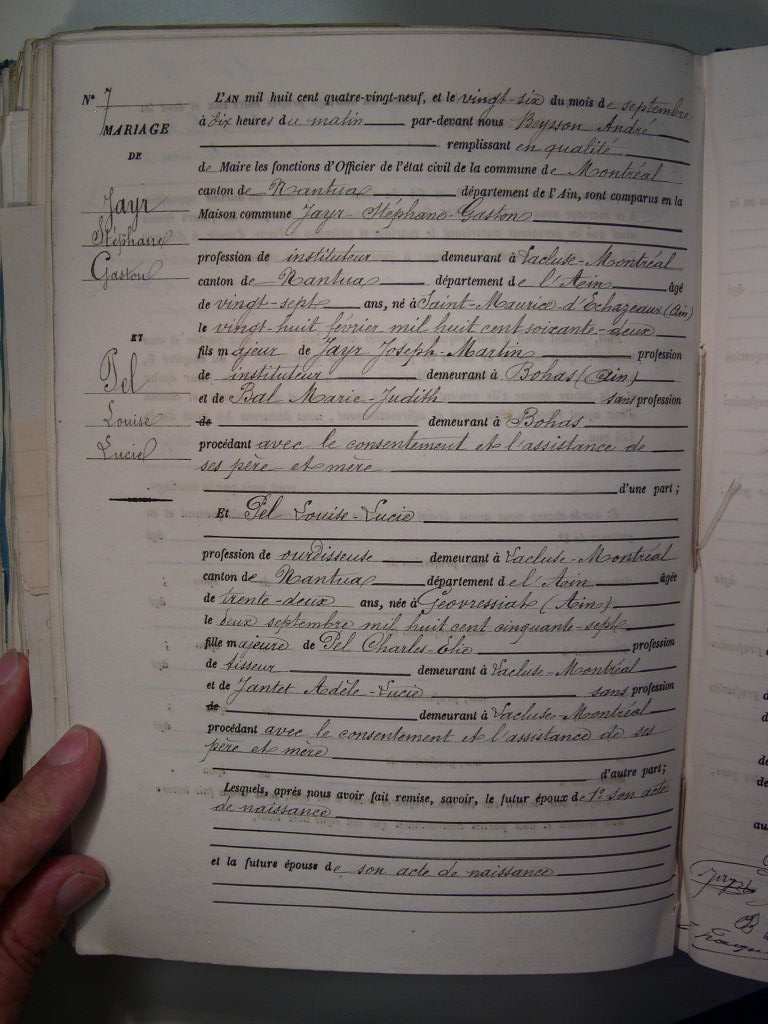 N° 7
MARIAGE
DE
Jayr
Stéphane
Gaston
ET
Pel
Louise
Lucie
L'AN mil huit cent quatre-vingt-neuf, et le vingt-six du mois de septembre
à dix heures du matin par-devant nous Beysson André
remplissant en qualité
de Maire les fonctions d'Officier de l'état civil de la commune de Montréal
canton de Nantua département de l'Ain, sont comparus en la
Maison commune Jayr Stéphane-Gaston
profession de instituteur demeurant à Lacluse-Montréal
canton de Nantua département de l'Ain âgé
de vingt-sept ans, né à Saint-Maurice-d'Echazeaux (Ain)
le vingt-huit février mil huit cent soixante-deux
fils majeur de Jayr Joseph-Martin profession
de instituteur demeurant à Bohas (Ain)
et de Bal Marie-Judith sans profession
de demeurant à Bohas
procédant avec le consentement et l'assistance de
ses père et mère
d'une part;
Et Pel Louise-Lucie
profession de ourdisseuse demeurant à Lacluse-Montréal
canton de Nantua département de l'Ain âgée
de trente-deux ans, née à Géovressiat (Ain)
le deux septembre mil huit cent cinquante-sept
fille majeure de Pel Charles-Elie profession
de tisseur demeurant à Lacluse-Montréal
et de Jantet Adèle-Lucie sans profession
de demeurant à Lacluse-Montréal
procédant avec le consentement et l'assistance de ses
père et mère
d'autre part;
Lesquels, après nous avoir fait remise, savoir, le futur époux de 1° son acte
de naissance
et la future épouse de son acte de naissance